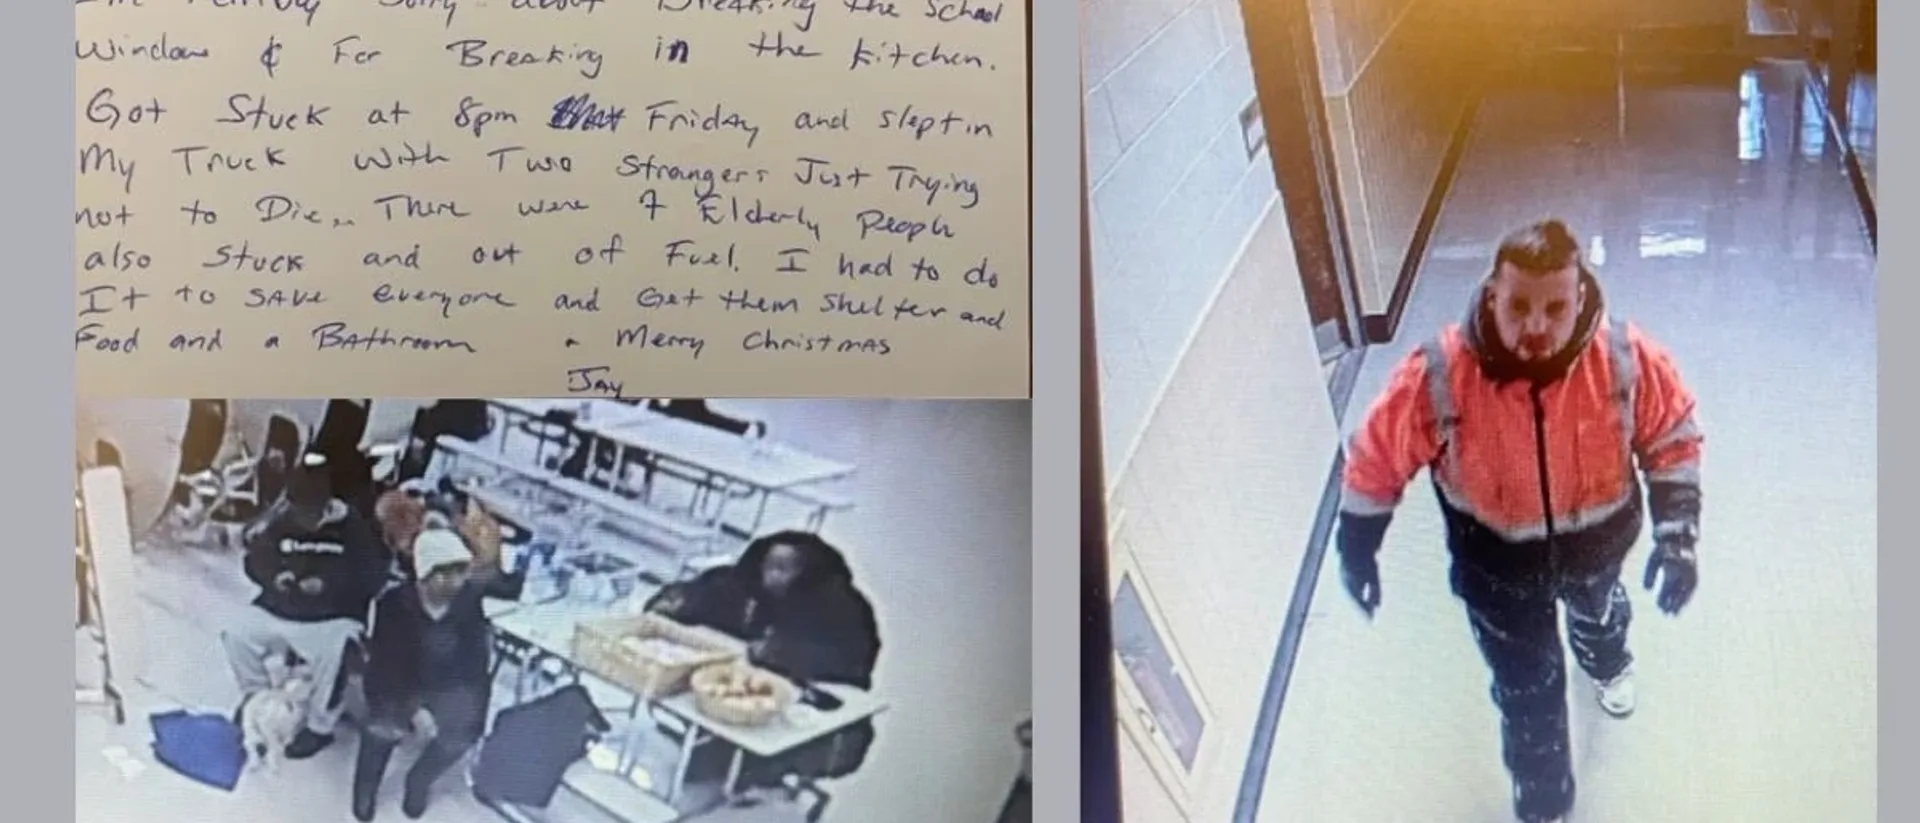 I'm terribly Sorry about Breaking the School
Window & For Breaking in the kitchen.
Got Stuck at 8pm Friday and slept in
My Truck with Two Strangers Just Trying
not to Die... There were 7 Elderly People
also Stuck and out of Fuel. I had to do
It to SAVE everyone and Get them shelter and
Food and a BAthroom - Merry ChristmAS
JAy
Champion